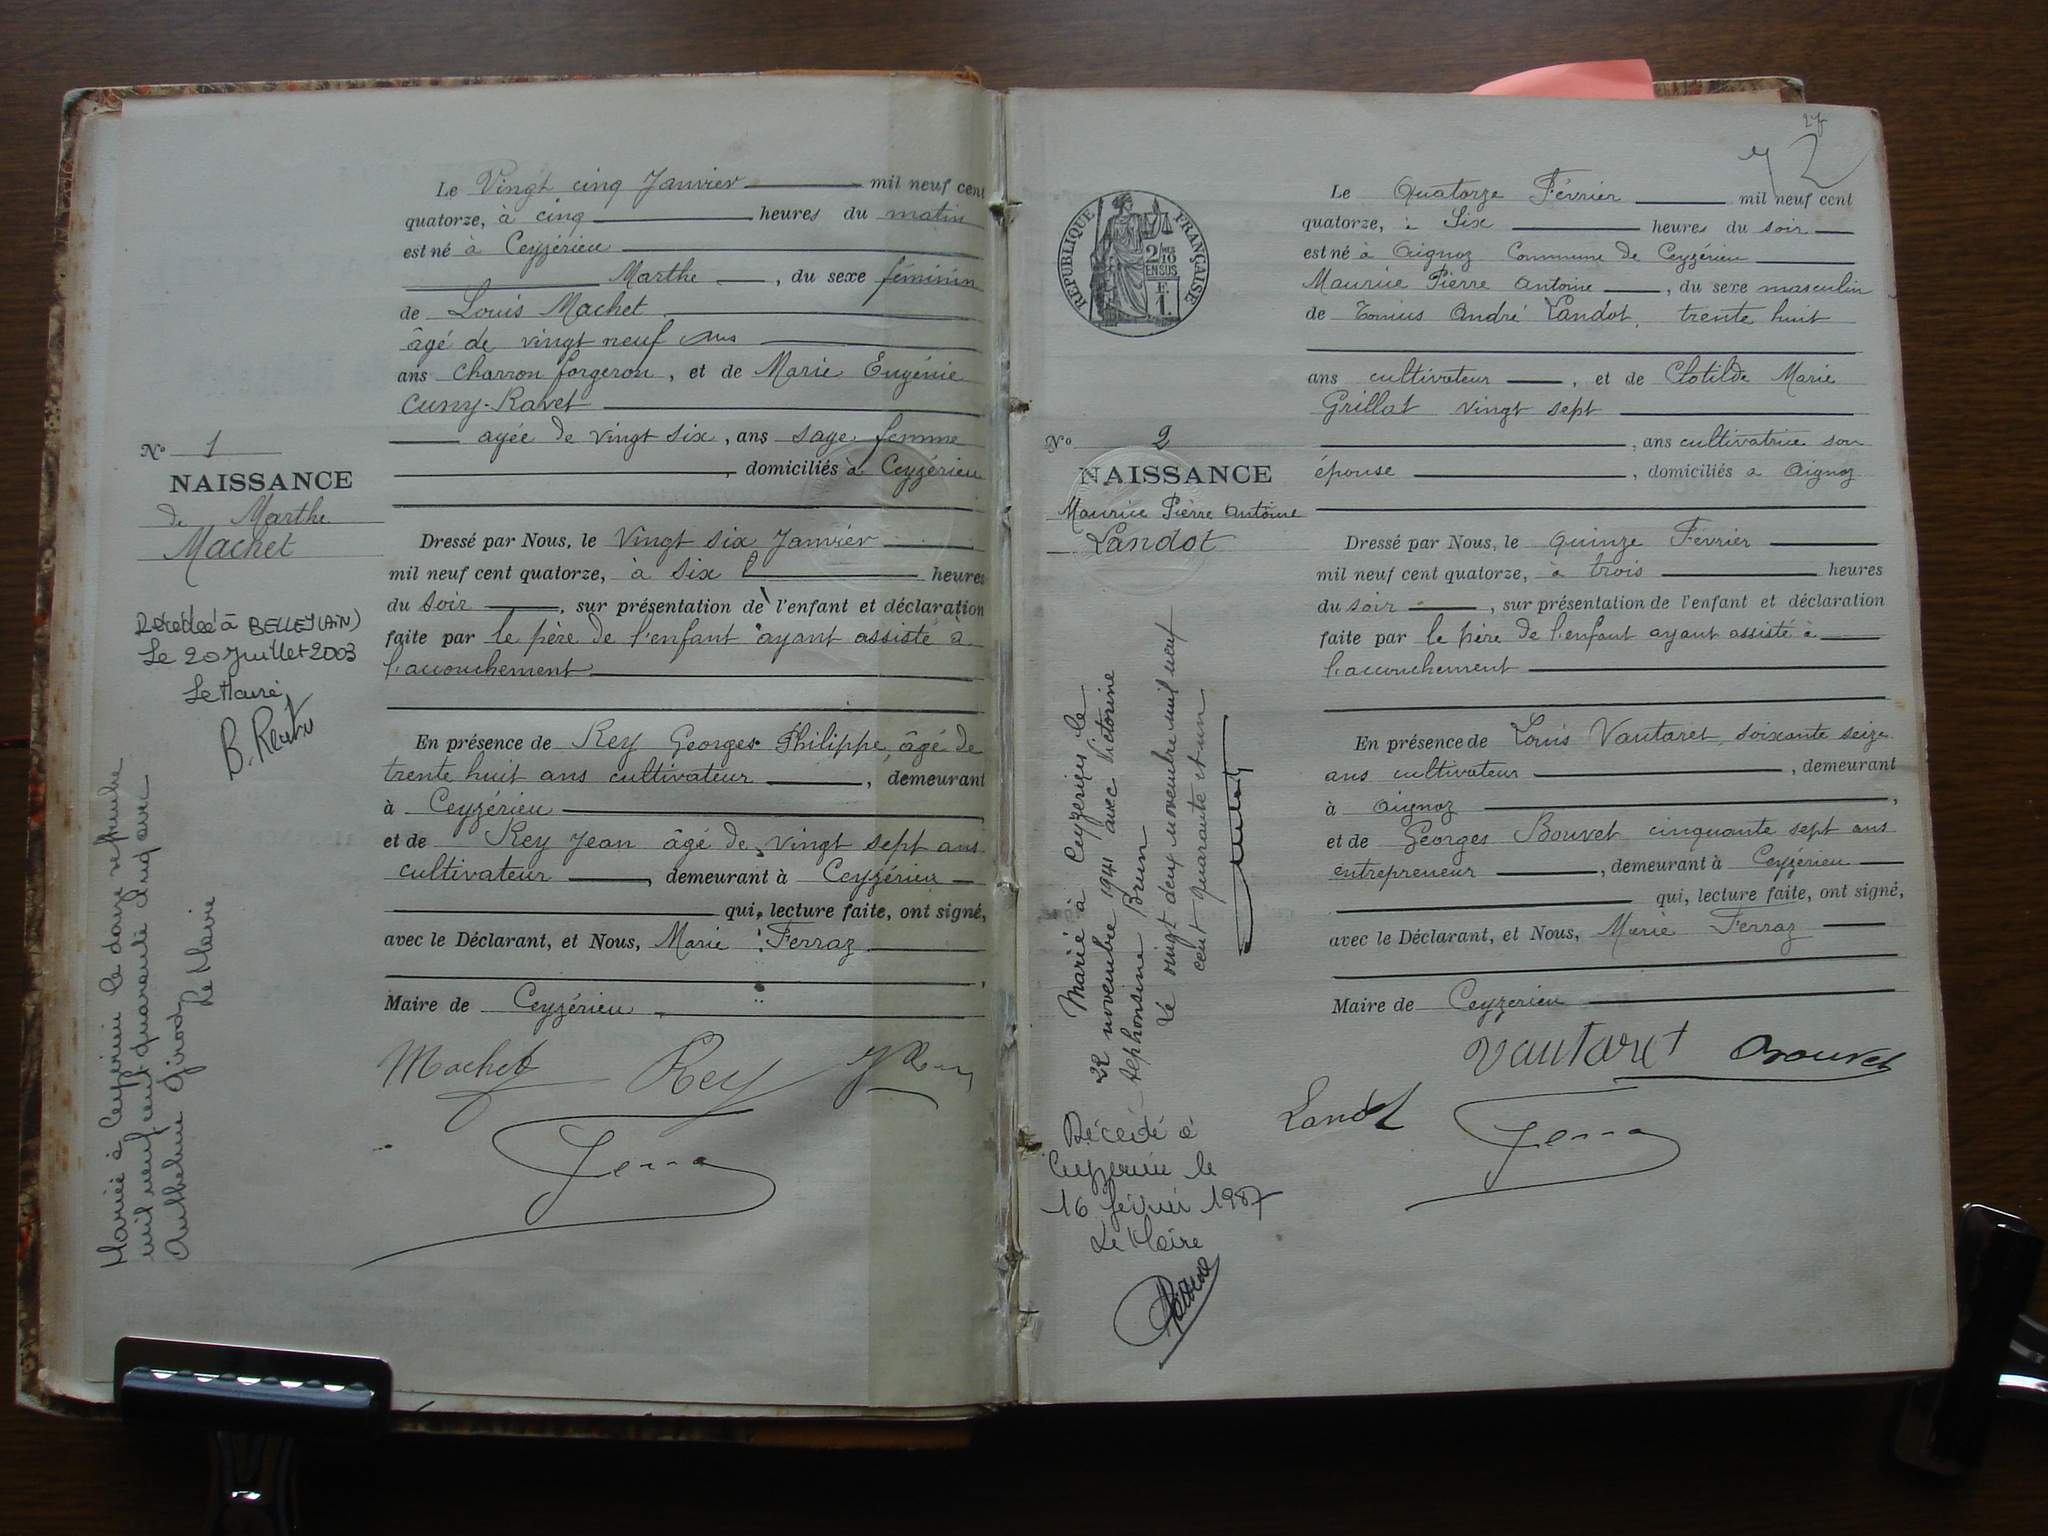 Le Vingt cinq Janvier mil neuf cent
quatorze, à cinq heures du matin
est né à Ceyzérieu
Marthe, du sexe féminin
de Louis Machet
âgé de vingt neuf ans
ans charron forgeron, et de Marie Eugénie
Cuny-Ravet
agée de vingt six, ans sage femme
, domiciliés à Ceyzérieu
No 1
NAISSANCE
de Marthe
Machet
Dressé par Nous, le vingt six Janvier
mil neuf cent quatorze, à six heures
du soir, sur présentation de l'enfant et déclaration
faite par le père de l'enfant ayant assisté à
l'accouchement
En présence de Rey Georges Philippe âgé de
trente huit ans cultivateur, demeurant
à Ceyzérieu
et de Rey Jean âgé de vingt sept ans
cultivateur, demeurant à Ceyzérieu
qui, lecture faite, ont signé,
avec le Déclarant, et Nous, Marie Ferraz
Maire de Ceyzérieu
Machet Rey
Décédée à BELLEY (AIN)
Le 20 Juillet 2003
Le Maire
Mariée à Ceyzérieu le douze septembre
mil neuf cent quarante cinq avec
Anthelme Girod
Le Maire
27
2
RÉPUBLIQUE FRANÇAISE
2/10
EN SUS
F.
1.
Le Quatorze Février mil neuf cent
quatorze, à Six heures du soir
est né à Aignoz Commune de Ceyzérieu
Maurice Pierre Antoine, du sexe masculin
de André Landot, trente huit
ans cultivateur, et de Clotilde Marie
Grillat vingt sept
, ans cultivatrice son
épouse, domiciliés à Aignoz
No 2
NAISSANCE
Maurice Pierre Antoine
Landot
Dressé par Nous, le quinze Février
mil neuf cent quatorze, à trois heures
du soir, sur présentation de l'enfant et déclaration
faite par le père de l'enfant ayant assisté à
l'accouchement
En présence de Louis Vautaret, soixante seize
ans cultivateur, demeurant
à Aignoz
et de Georges Bouvet cinquante sept ans
entrepreneur, demeurant à Ceyzérieu
qui, lecture faite, ont signé,
avec le Déclarant, et Nous, Marie Ferraz
Maire de Ceyzerieu
Vautaret Bouvet
Landot
Marié à Ceyzerieu le
22 novembre 1941 avec Victorine
Alphonsine Brun
Le vingt deux novembre mil neuf
cent quarante et un
Décédé à
Ceyzerieu le
16 février 1987
Le Maire